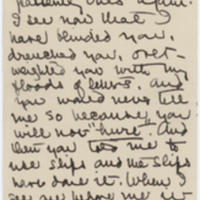 I see now that I
have blinded you,
drenched you, over
weighted you with my
floods of letters, and
you would never tell
me so because you
will now "hurt". And
then you too me to
use slips and the slips
have done it. When I
see are before me it